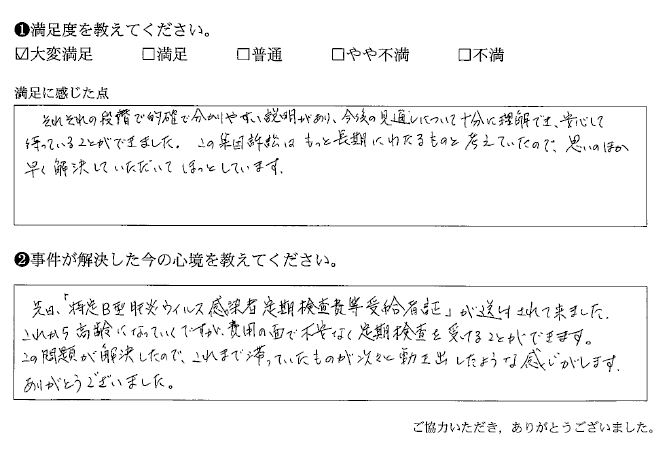 ❶満足度を教えてください。
☑大変満足 □満足 □普通 □やや不満 □不満
満足に感じた点
それぞれの段階で的確で分かりやすい説明があり、今後の見通しについて十分に理解でき、安心して
待っていることができました。この集団訴訟はもっと長期にわたるものと考えていたので、思いのほか
早く解決していただいてほっとしています。
❷事件が解決した今の心境を教えてください。
先日、「特定B型肝炎ウイルス感染者定期検査費等受給者証」が送付されて来ました。
これから高齢になっていくですが、費用の面で不安なく定期検査を受けることができます。
この問題が解決したので、これまで滞っていたものが次々と動き出したような感じがします。
ありがとうございました。
ご協力いただき，ありがとうございました。